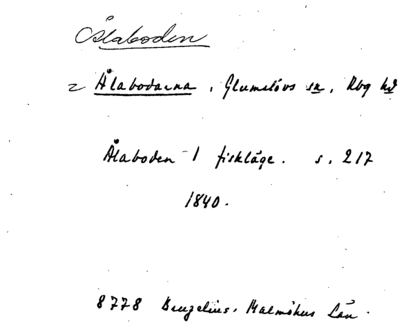 Ålaboden
= Ålabodarna, Glumslövs sn, Rbg hd
Ålaboden 1 fiskläge. s. 217
1840.
8778 Benzelius. Malmöhus Län.